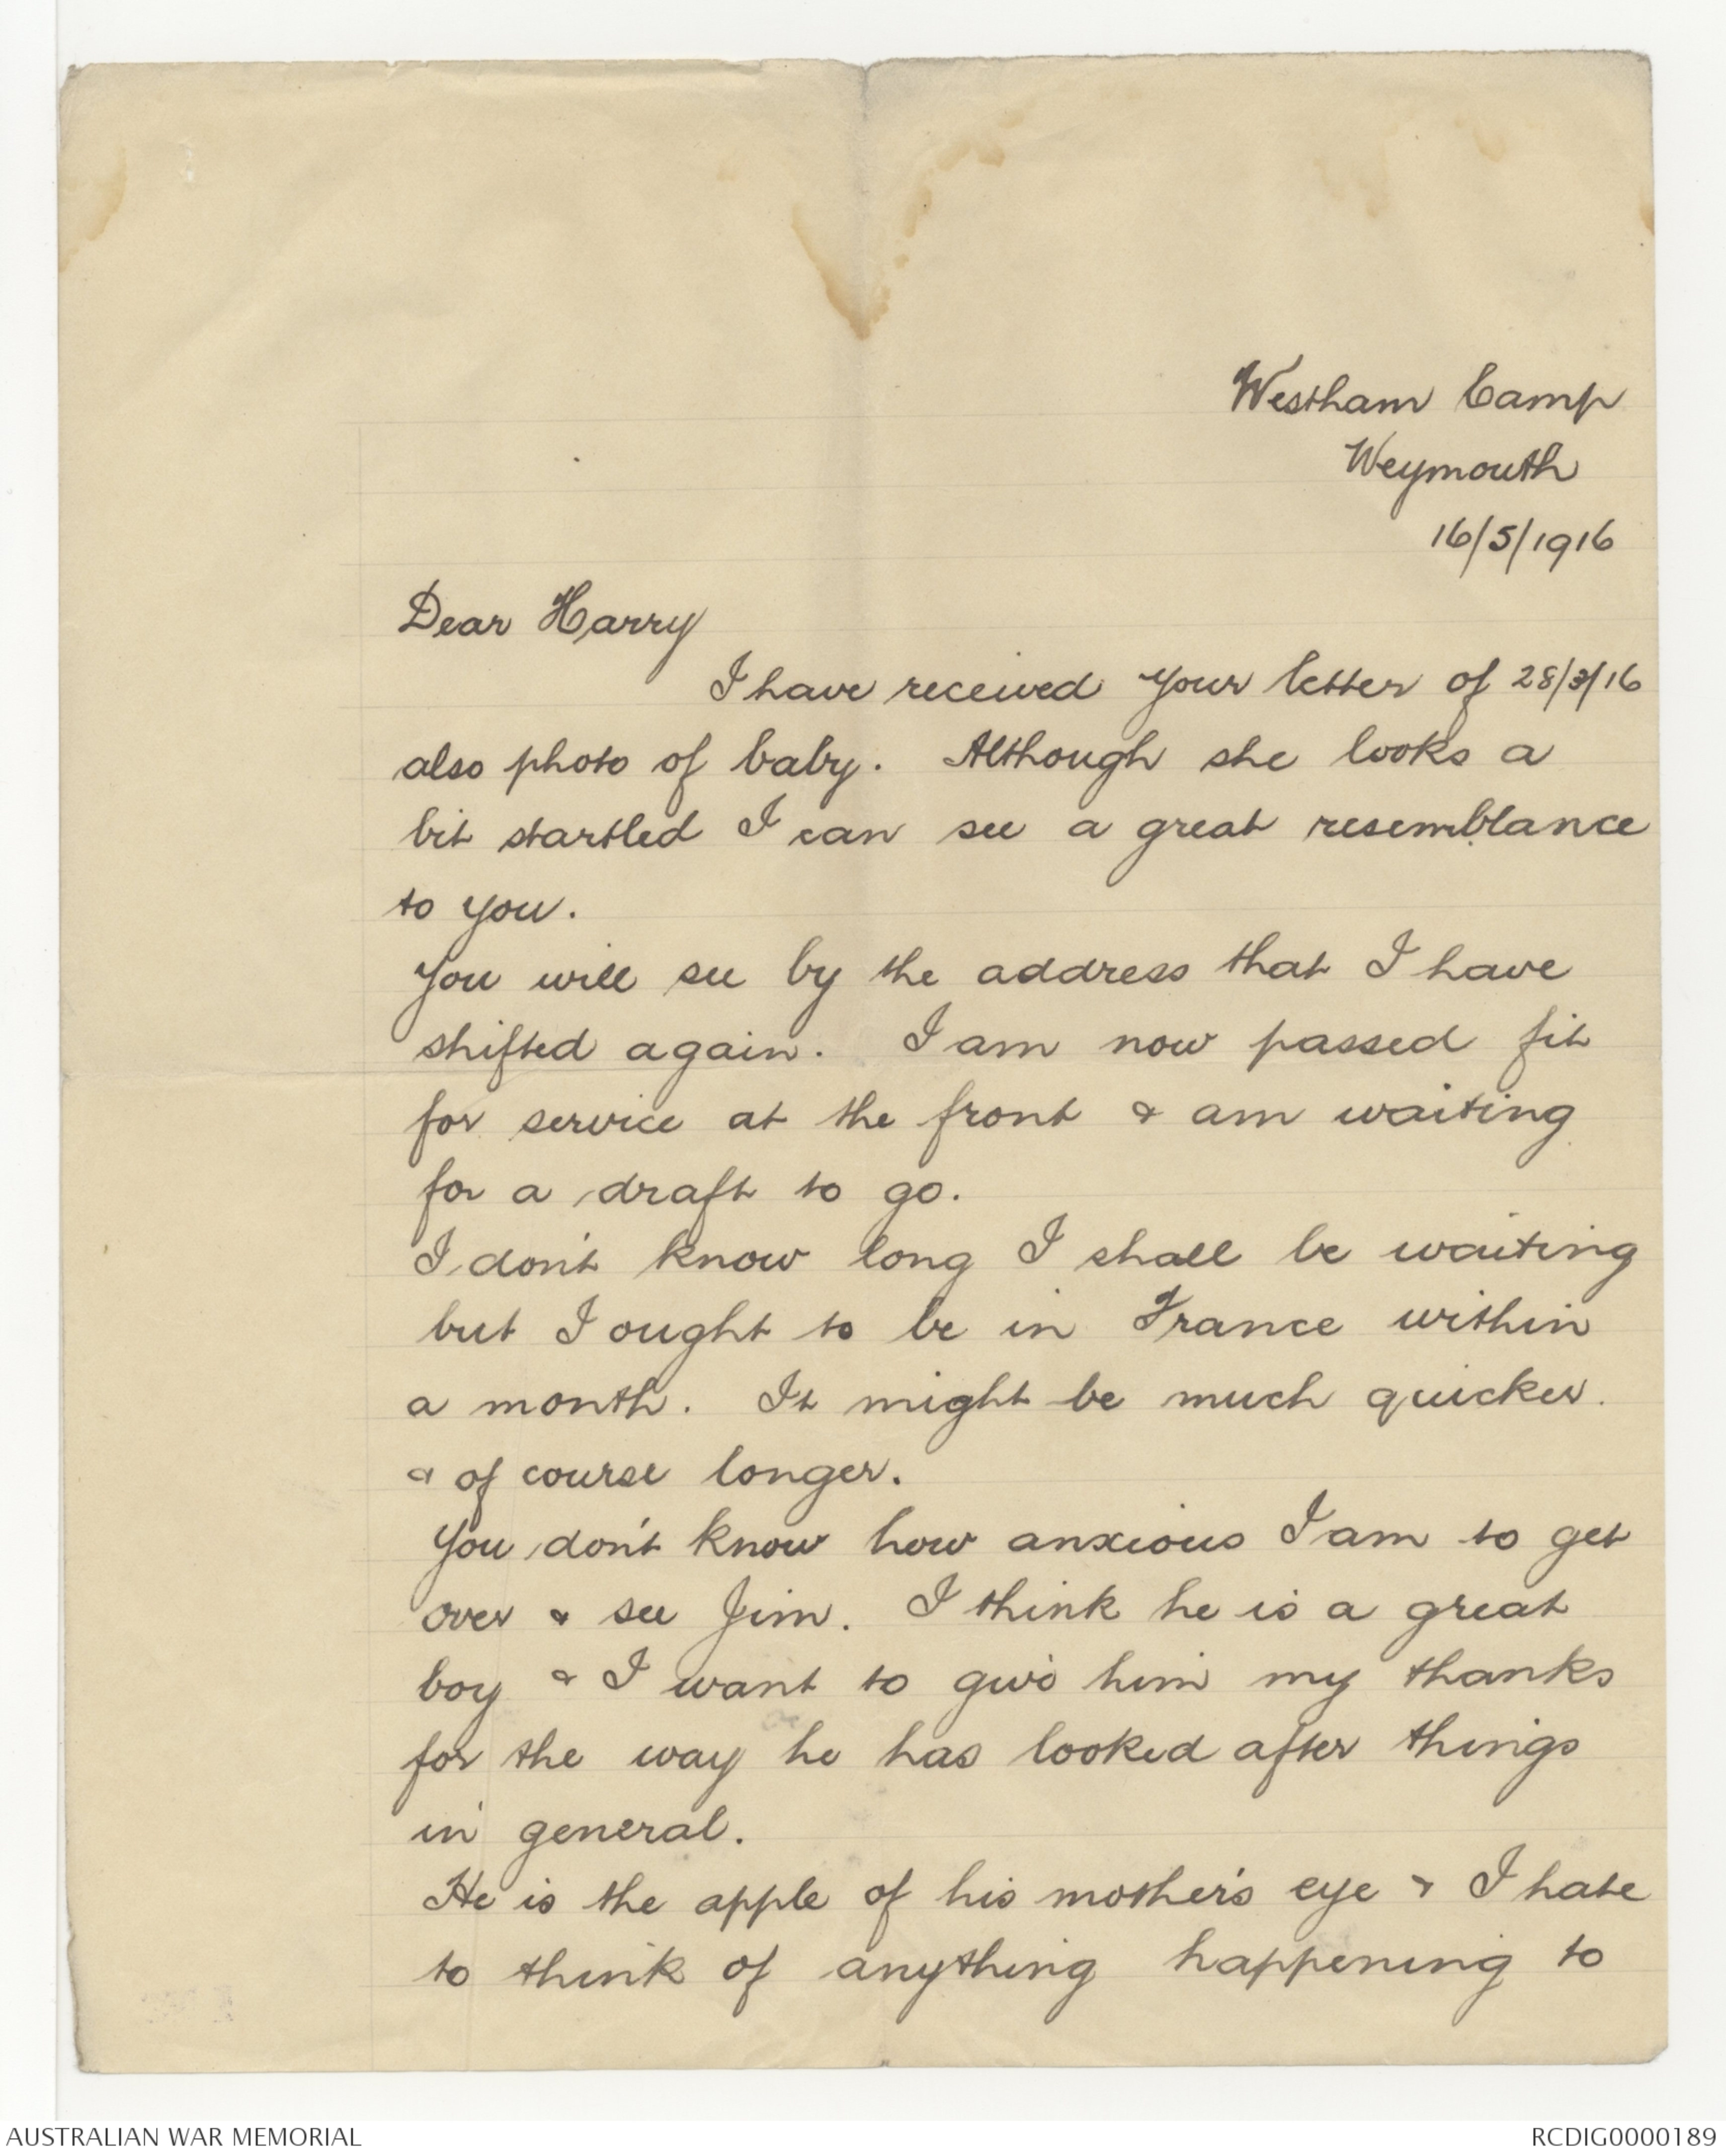 Westham Camp
Weymouth
16/5/1916
Dear Harry
I have received your letter of 28/3/16
also photo of baby. Although she looks a
bit startled I can see a great resemblance
to you.
You will see by the address that I have
shifted again. I am now passed fit
for service at the front & am waiting
for a draft to go.
I don't know long I shall be waiting
but I ought to be in France within
a month. It might be much quicker.
& of course longer.
You don't know how anxious I am to get
over & see Jim. I think he is a great
boy & I want to give him my thanks
for the way he has looked after things
in general.
He is the apple of his mother's eye & I hate
to think of anything happening to
AUSTRALIAN WAR MEMORIAL
RCDIG0000189